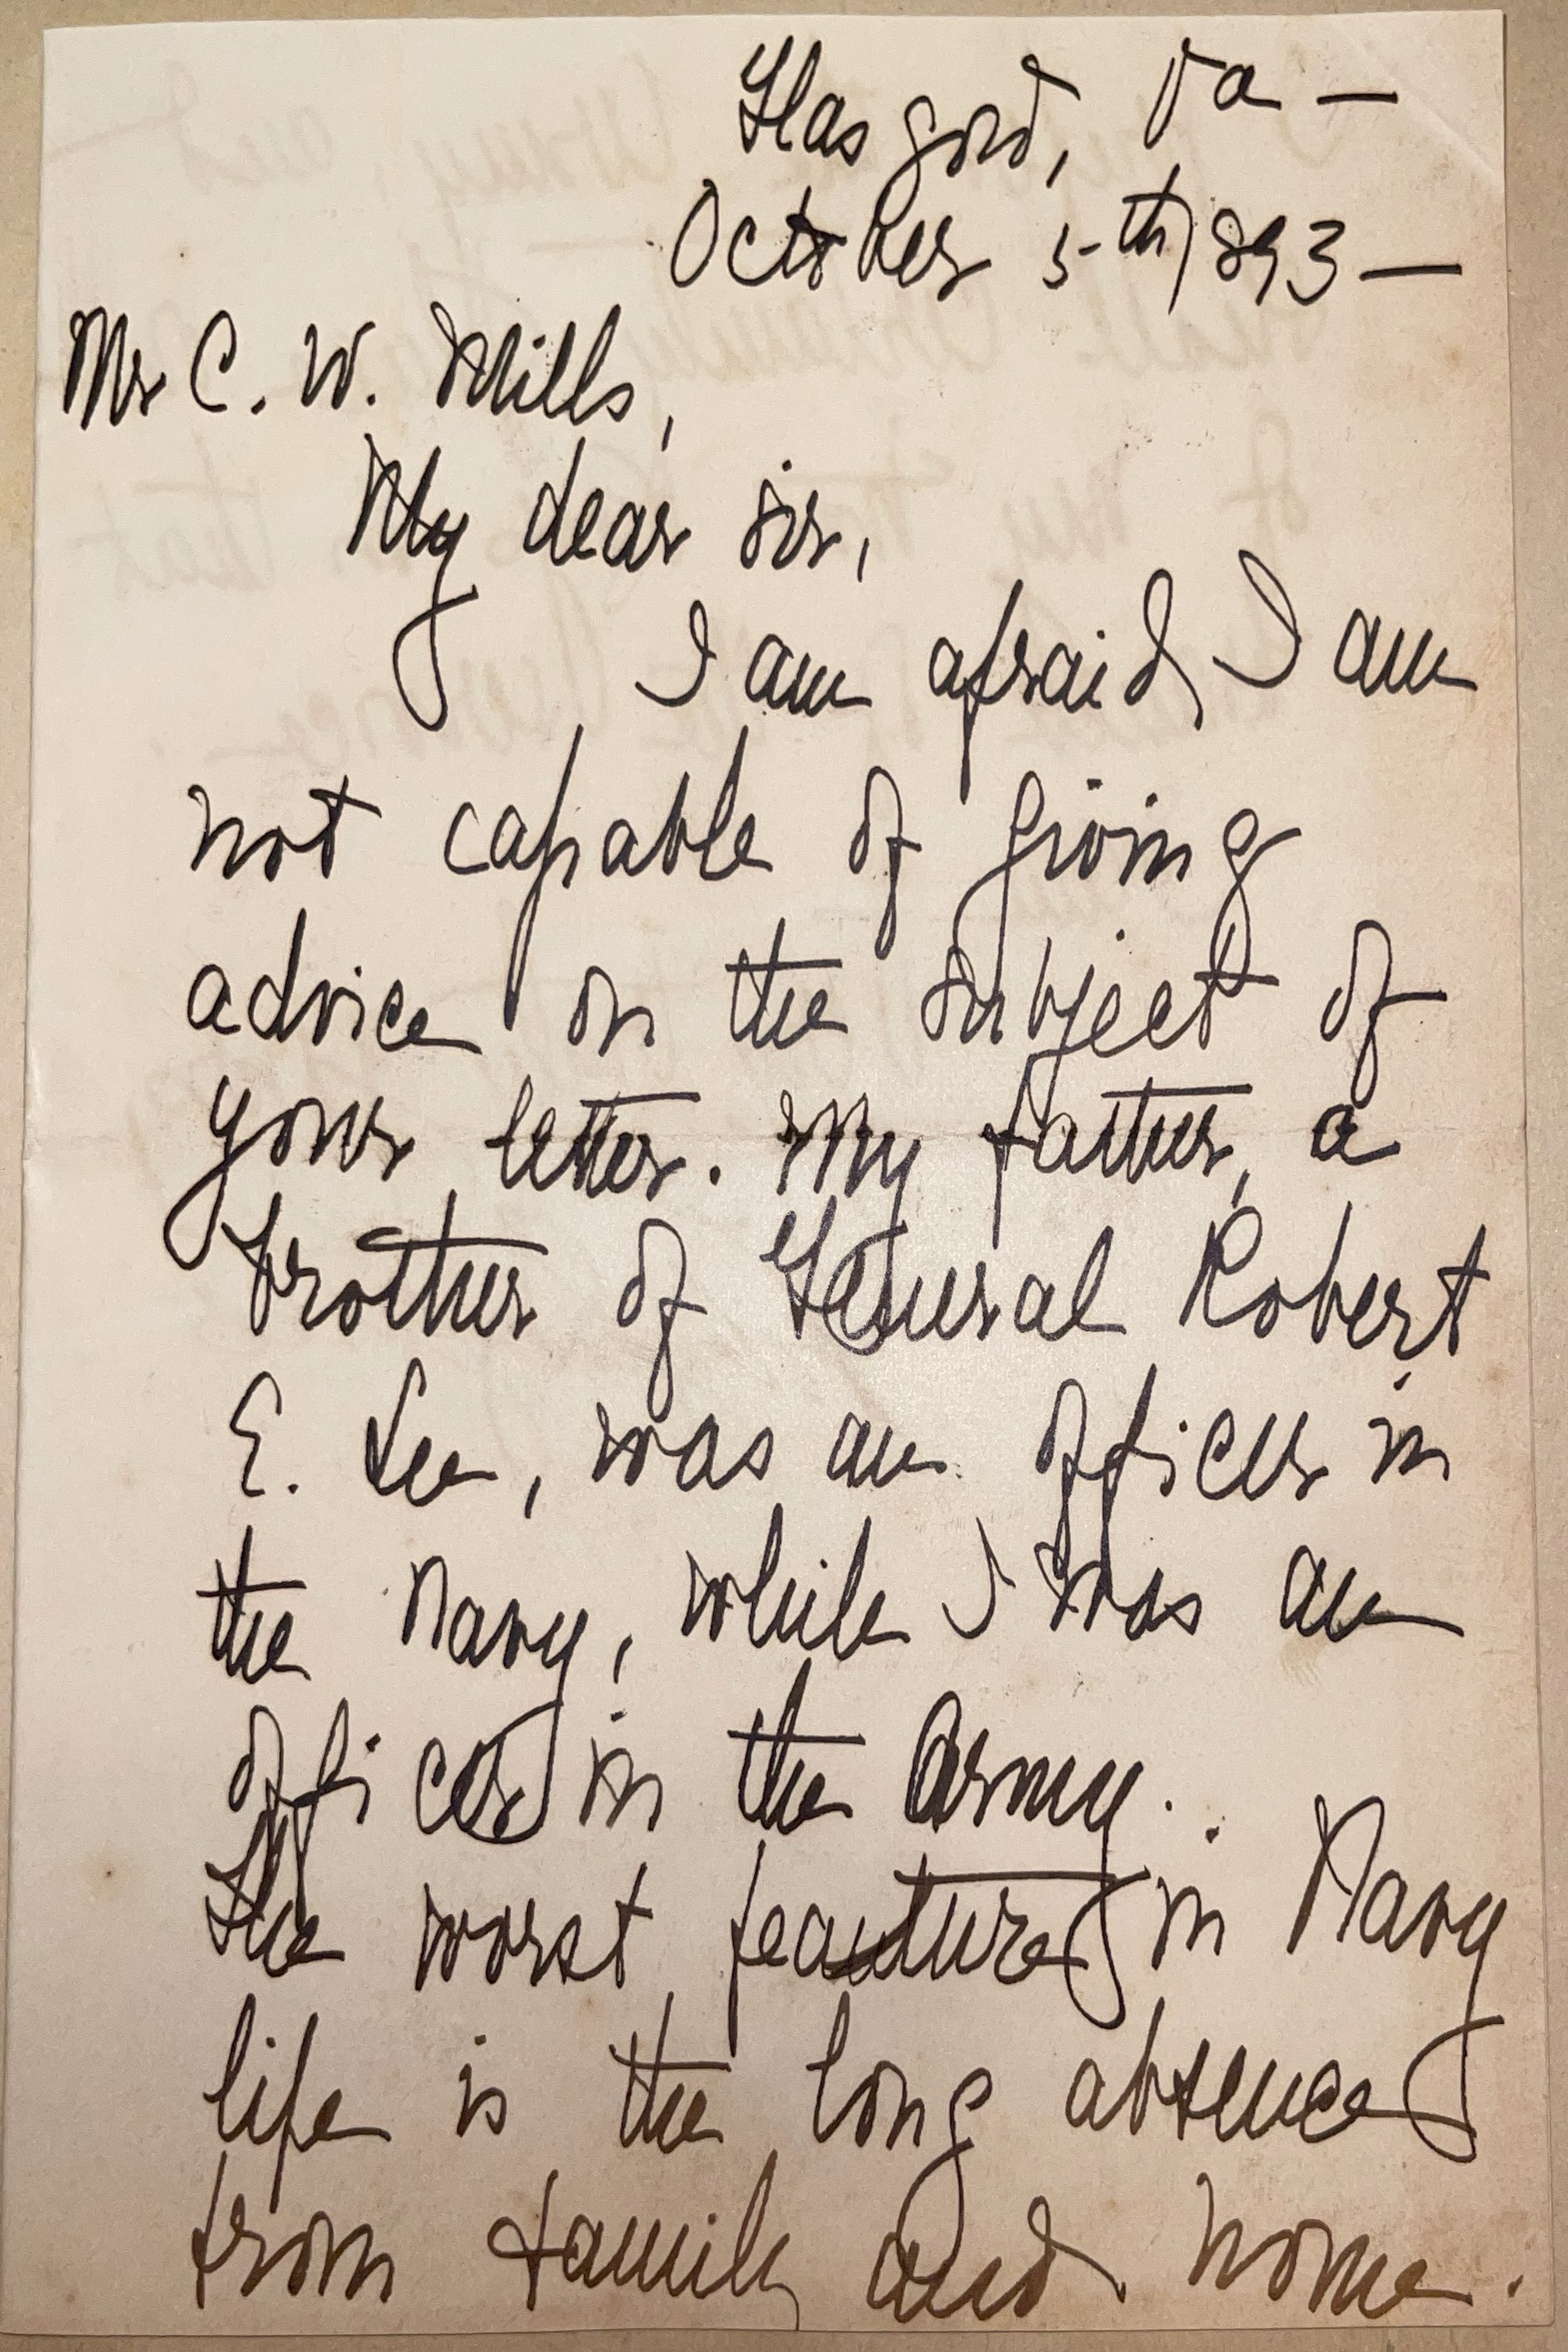 Glasgow, Va —
October 5th 1893 —
Mr C. W. Mills,
My dear sir,
I am afraid, I am
not capable of giving
advice on the subject of
your letter. My father, a
brother of General Robert
E. Lee, was an officer in
the Navy, while I was an
officer in the Army.
The worst feature in Navy
life is the long absence
from family and home.